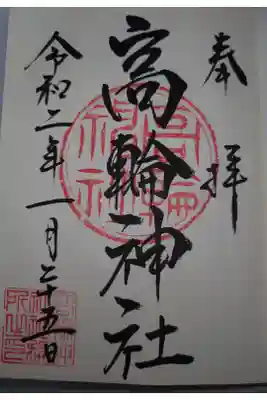 奉拝
高輪神社
令和二年一月二十五日